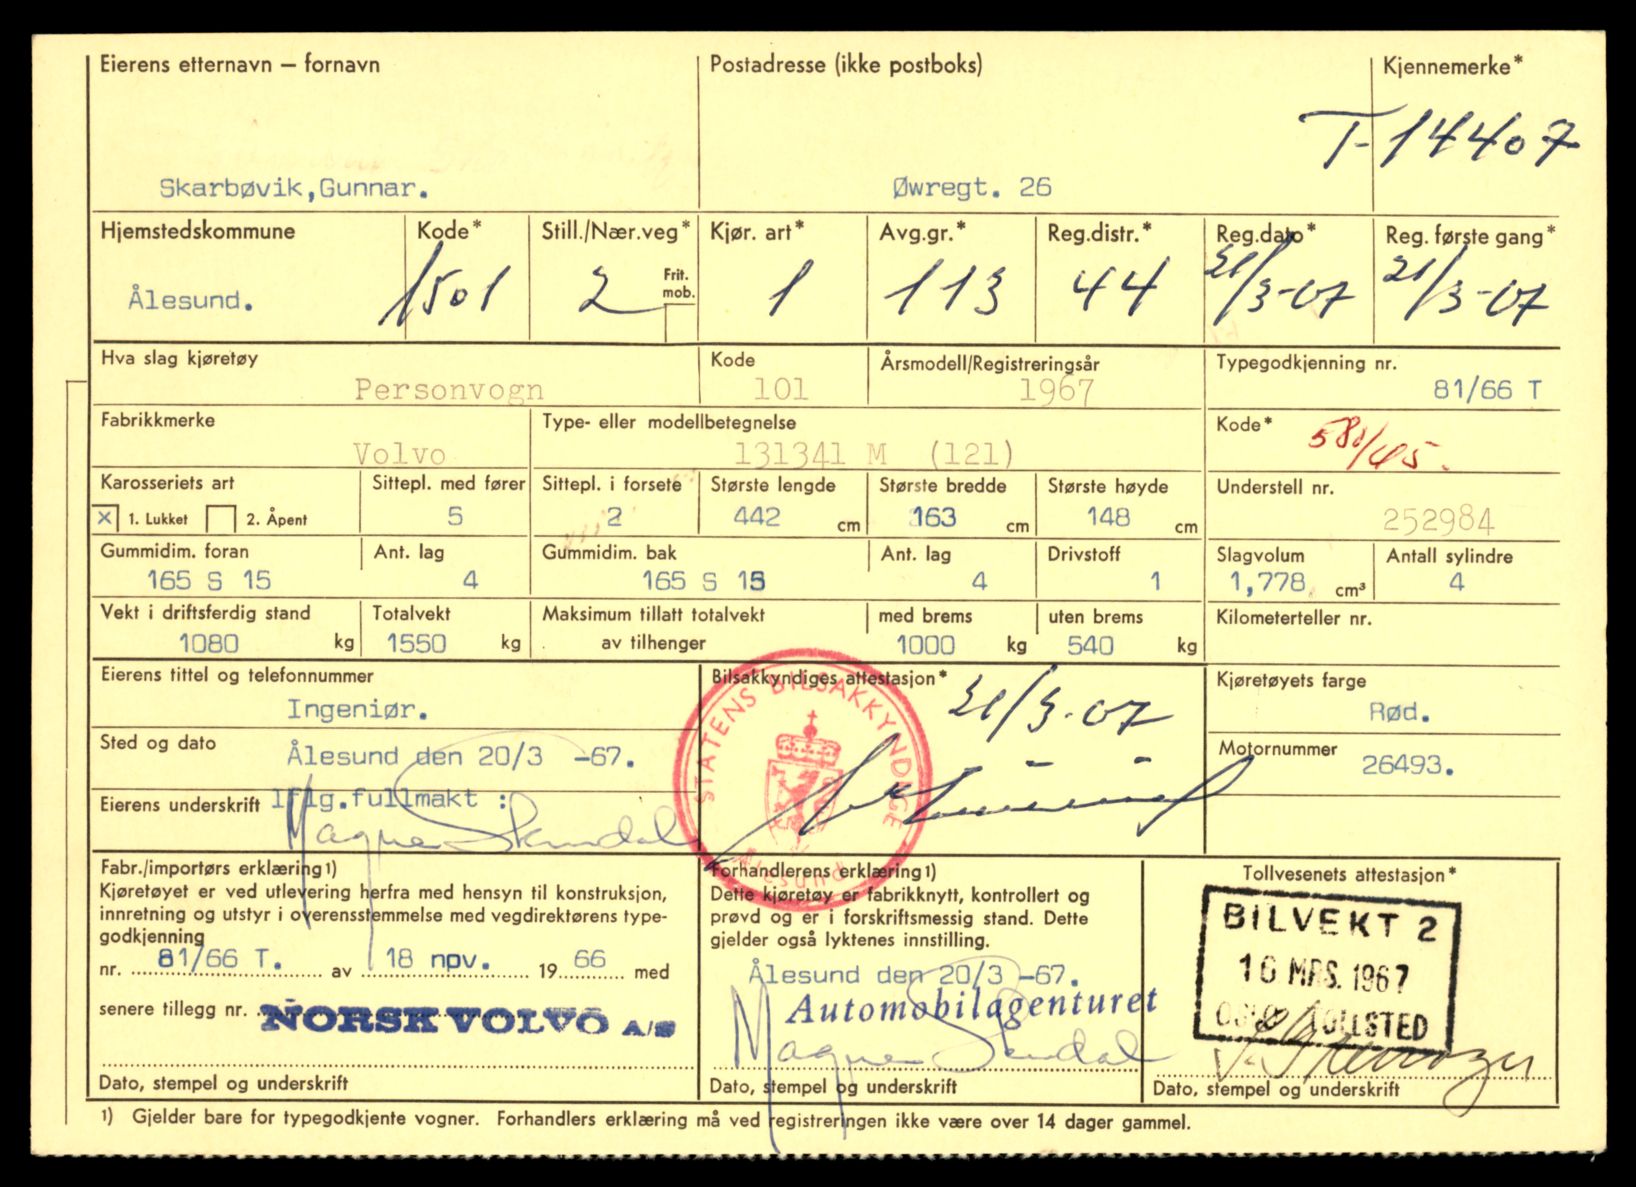 Eierens etternavn – fornavn
Postadresse (ikke postboks)
Kjennemerke*
T-14407
Skarbøvik,Gunnar.
Øwregt. 26
Hjemstedskommune
Kode*
Still./Nær.veg*
Kjør. art*
Avg.gr.*
Reg.distr.*
Reg.dato*
Reg. første gang*
Ålesund.
1501
2
Frit. mob.
1
113
44
21/3-67
21/3-67
Hva slag kjøretøy
Kode
Årsmodell/Registreringsår
Typegodkjenning nr.
Personvogn
101
1967
81/66 T
Fabrikkmerke
Type- eller modellbetegnelse
Kode*
Volvo
131341 M (121)
Karosseriets art
Sittepl. med fører
Sittepl. i forsete
Største lengde
Største bredde
Største høyde
Understell nr.
X 1. Lukket 2. Åpent
5
2
442 cm
163 cm
148 cm
252984
Gummidim. foran
Ant. lag
Gummidim. bak
Ant. lag
Drivstoff
Slagvolum
Antall sylindre
165 S 15
4
165 S 15
4
1
1,778 cm³
4
Vekt i driftsferdig stand
Totalvekt
Maksimum tillatt totalvekt
med brems
uten brems
Kilometerteller nr.
1080 kg
1550 kg
av tilhenger
1000 kg
540 kg
Eierens tittel og telefonnummer
Bilsakkyndiges attestasjon*
Kjøretøyets farge
Ingeniør.
21/3-67
Rød.
STATENS BILSAKKYNDIGE
Ålesund
Sted og dato
Ålesund den 20/3 -67.
Motornummer
26493.
Eierens underskrift
Iflg.fullmakt :
Magne Skundal
Fabr./importørs erklæring1)
Kjøretøyet er ved utlevering herfra med hensyn til konstruksjon,
innretning og utstyr i overensstemmelse med vegdirektørens type-
godkjenning
nr. 81/66 T. av 18 npv. 19 66 med
senere tillegg nr.
NORSK VOLVO A/S
Dato, stempel og underskrift
Forhandlerens erklæring1)
Dette kjøretøy er fabrikknytt, kontrollert og
prøvd og er i forskriftsmessig stand. Dette
gjelder også lyktenes innstilling.
Ålesund den 20/3 -67.
Automobilagenturet
Magne Skundal
Dato, stempel og underskrift
Tollvesenets attestasjon*
BILVEKT 2
10 MRS. 1967
OSLO TOLLSTED
Dato, stempel og underskrift
1) Gjelder bare for typegodkjente vogner. Forhandlers erklæring må ved registreringen ikke være over 14 dager gammel.